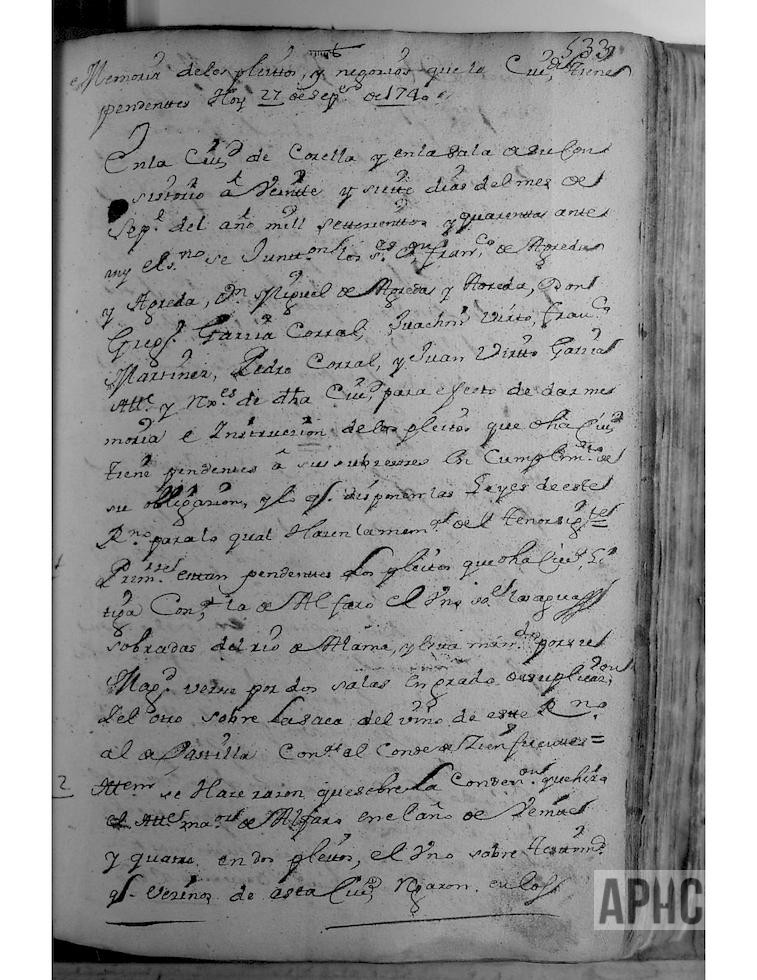 533
Memoria de los pleitos, y negocios que la Ciud. tiene
pendenttes Hoy 27 de Sepre. de 1740
En la Ciud. de Corella y en la Sala de su Con
sistorio â Veintte y siette dias del mes de
Sepe. del año mill settecienttos y quarentta ante
my el sno. se Junttaron los Ses. Dn. Franco. de Agreda
y Agreda, Dn. Miguel de Agreda y Agreda, Don
Gregº. Garcia Corral, Juachin Virto, Franco.
Martinez, Pedro Corral, y Juan Virtto Garcia
Alles. y Rexes. de dha Ciud. para efecto de dar me
moria e Instrucion de los pleitos que dha Ciud.
tiene pendentes â sus subcesores en Cumplimto. de
su obligacion, y lo q. disponen las Leyes de este
Rno. para lo qual Hacen la mem. del thenor sigte.
Primte. estan pendenttes dos pleitos que dha Ciud. li
tiga Con la de Alfaro el Vno las aguas
sobradas del rio de Alama, y esta man por su
Magd. verse por dos salas en grado de suplicacion
del otro sobre la saca del vino de este Rno.
al de Casttilla Contra el Conde de Zienfuenttes=
2 Attem se Hace racon que sobre la Conden. que hizo
el Alle. maor. de Alfaro en el año de Veintte
y quatro en dos pleitos, el Vno sobre
q. vecinos de esta Ciud. en los
APHC